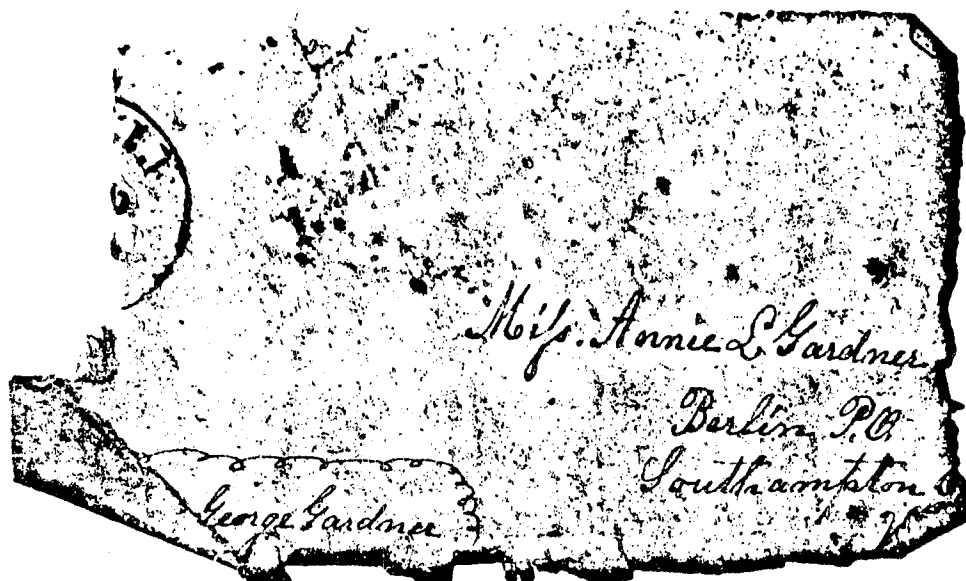 Miss. Annie L Gardner
Berlin P.O.
Southampton Co
Va
George Gardner